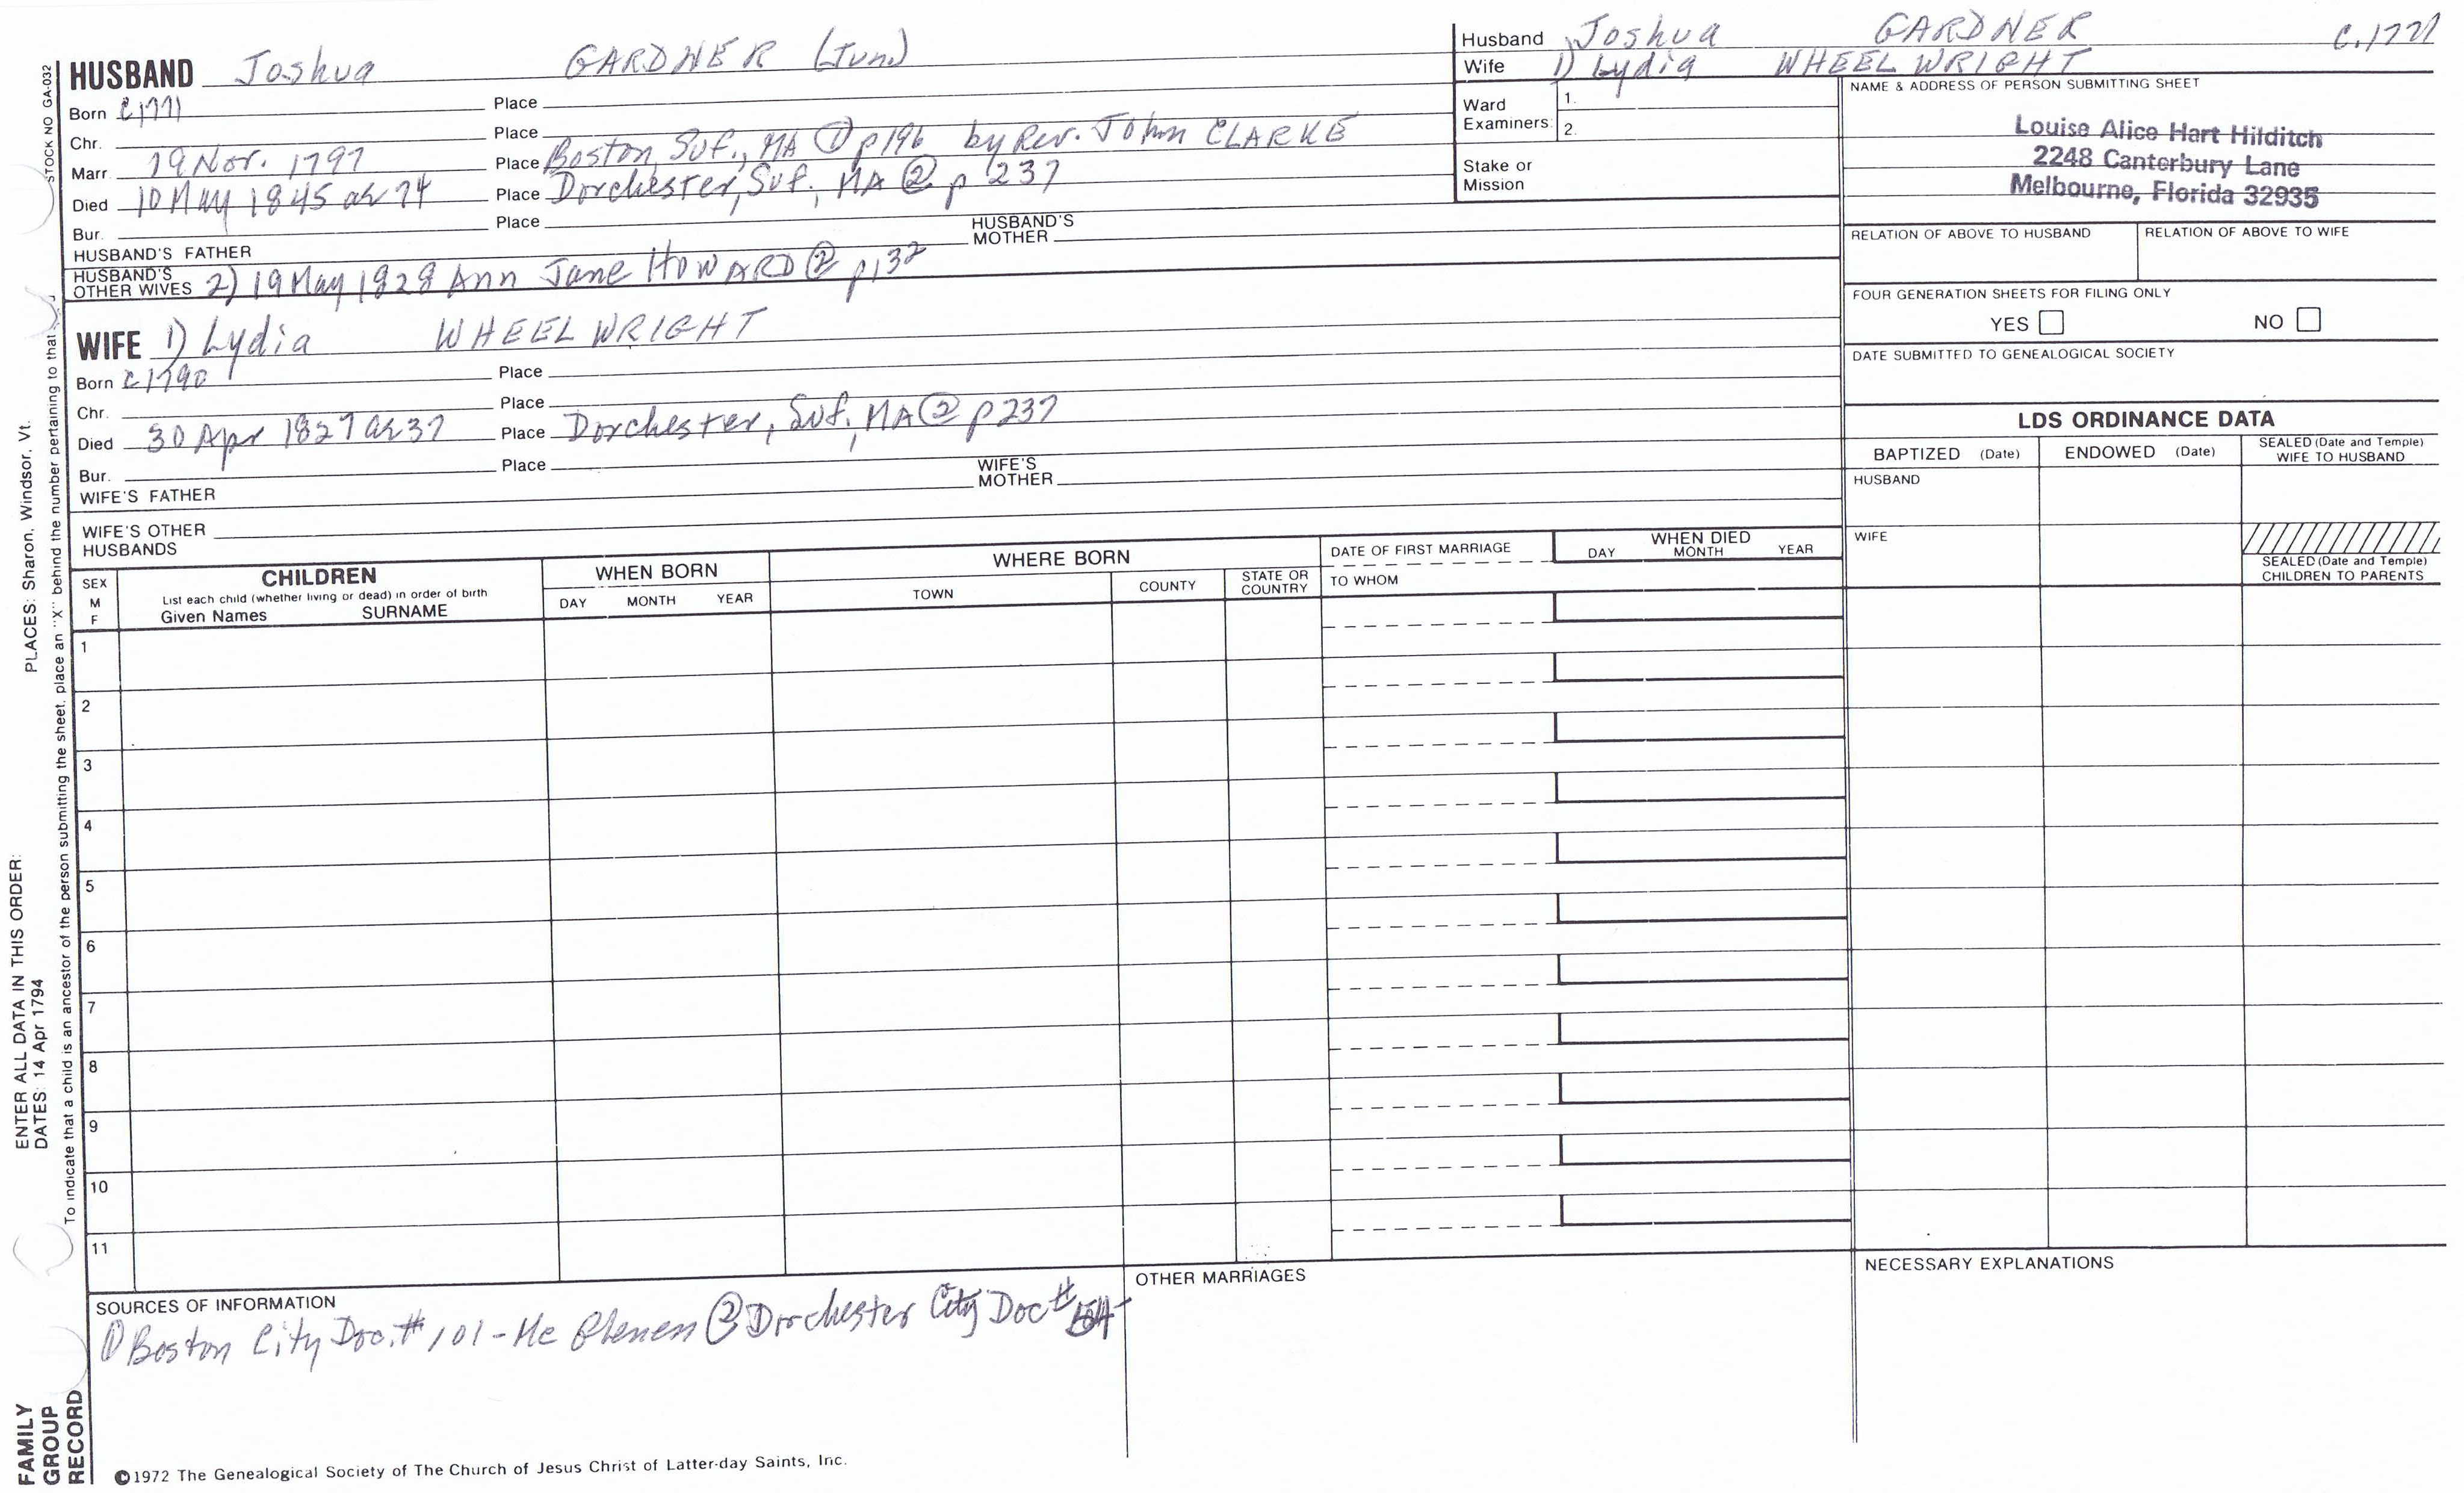 HUSBAND Joshua GARDNER (Jun)
Born c1771 Place
Chr. Place
Marr. 19 Nov. 1797 Place Boston, Suf., MA ① p196 by Rev. John CLARKE
Died 10 May 1845 ae 74 Place Dorchester, Suf., MA ② p 237
Bur. Place
HUSBAND'S FATHER HUSBAND'S MOTHER
HUSBAND'S OTHER WIVES 2) 19 May 1828 Ann Jane HOWARD ② p132
WIFE 1) Lydia WHEELWRIGHT
Born c1790 Place
Chr. Place
Died 30 Apr 1827 ae 37 Place Dorchester, Suf., MA ② p237
Bur. Place
WIFE'S FATHER WIFE'S MOTHER
WIFE'S OTHER HUSBANDS
Husband Joshua GARDNER c.1771
Wife 1) Lydia WHEELWRIGHT
Ward Examiners: 1.
2.
Stake or Mission
NAME & ADDRESS OF PERSON SUBMITTING SHEET
Louise Alice Hart Hilditch
2248 Canterbury Lane
Melbourne, Florida 32935
RELATION OF ABOVE TO HUSBAND RELATION OF ABOVE TO WIFE
FOUR GENERATION SHEETS FOR FILING ONLY
YES NO
DATE SUBMITTED TO GENEALOGICAL SOCIETY
LDS ORDINANCE DATA
BAPTIZED (Date) ENDOWED (Date) SEALED (Date and Temple) WIFE TO HUSBAND
HUSBAND
WIFE
SEALED (Date and Temple) CHILDREN TO PARENTS
SEX M F
CHILDREN
List each child (whether living or dead) in order of birth
Given Names SURNAME
WHEN BORN
DAY MONTH YEAR
WHERE BORN
TOWN COUNTY STATE OR COUNTRY
DATE OF FIRST MARRIAGE
TO WHOM
WHEN DIED
DAY MONTH YEAR
1
2
3
4
5
6
7
8
9
10
11
SOURCES OF INFORMATION
① Boston City Doc. # 101 - Mc ② Dorchester City Doc #
OTHER MARRIAGES
NECESSARY EXPLANATIONS
©1972 The Genealogical Society of The Church of Jesus Christ of Latter-day Saints, Inc.
STOCK NO GA-032
To indicate that a child is an ancestor of the person submitting the sheet, place an "X" behind the number pertaining to that
ENTER ALL DATA IN THIS ORDER:
DATES: 14 Apr 1794
PLACES: Sharon, Windsor, Vt.
FAMILY
GROUP
RECORD